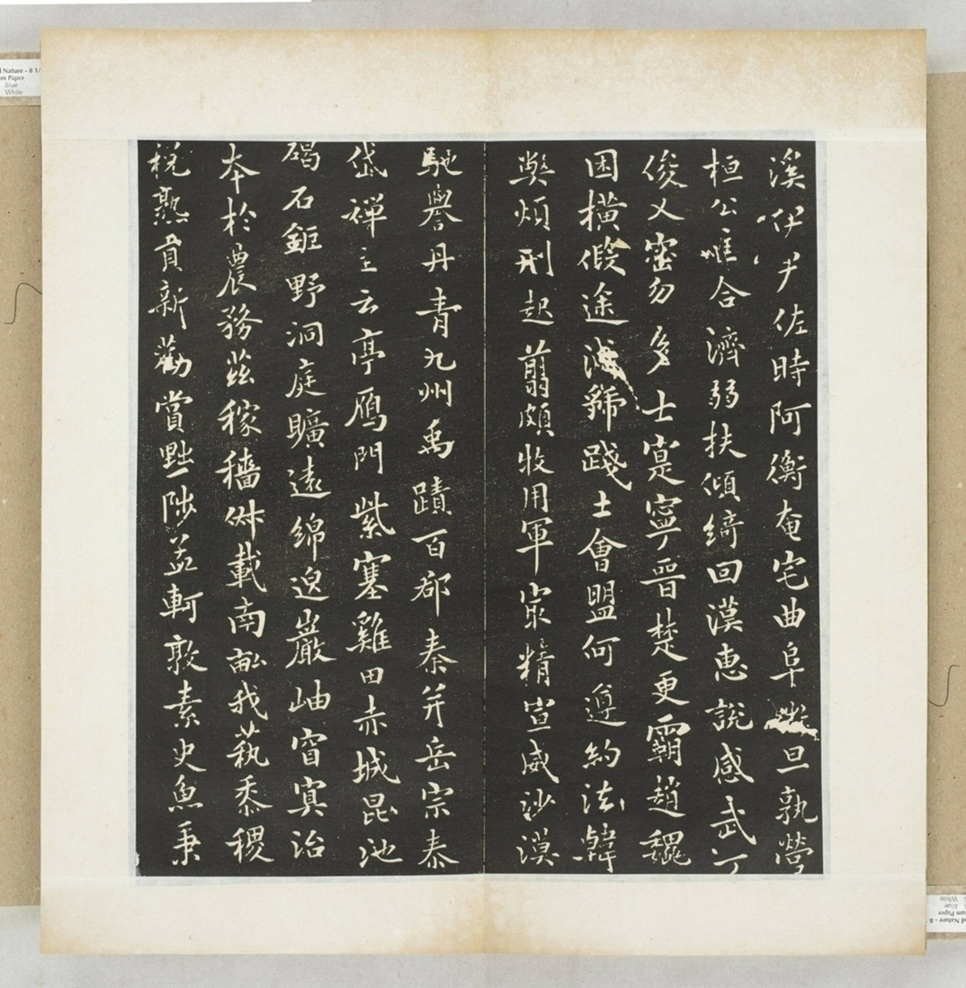 溪伊尹佐時阿衡奄宅曲阜微旦孰營
桓公合濟弱扶傾綺回漢惠說感武丁
俊乂密勿多士寔寧晉楚更霸趙魏
困橫假途滅虢踐土會盟何遵約法韓
弊煩刑起翦頗牧用軍最精宣威沙漠
馳譽丹青九州禹蹟百郡秦并岳宗泰
岱禪主云亭鴈門紫塞雞田赤城昆池
碣石鉅野洞庭曠遠綿邈巖岫窅冥治
本於農務茲稼穡俶載南畝我藝黍稷
稅熟貢新勸賞黜陟孟軻敦素史魚秉
Nature - 8 1/
Paper
Blue
White